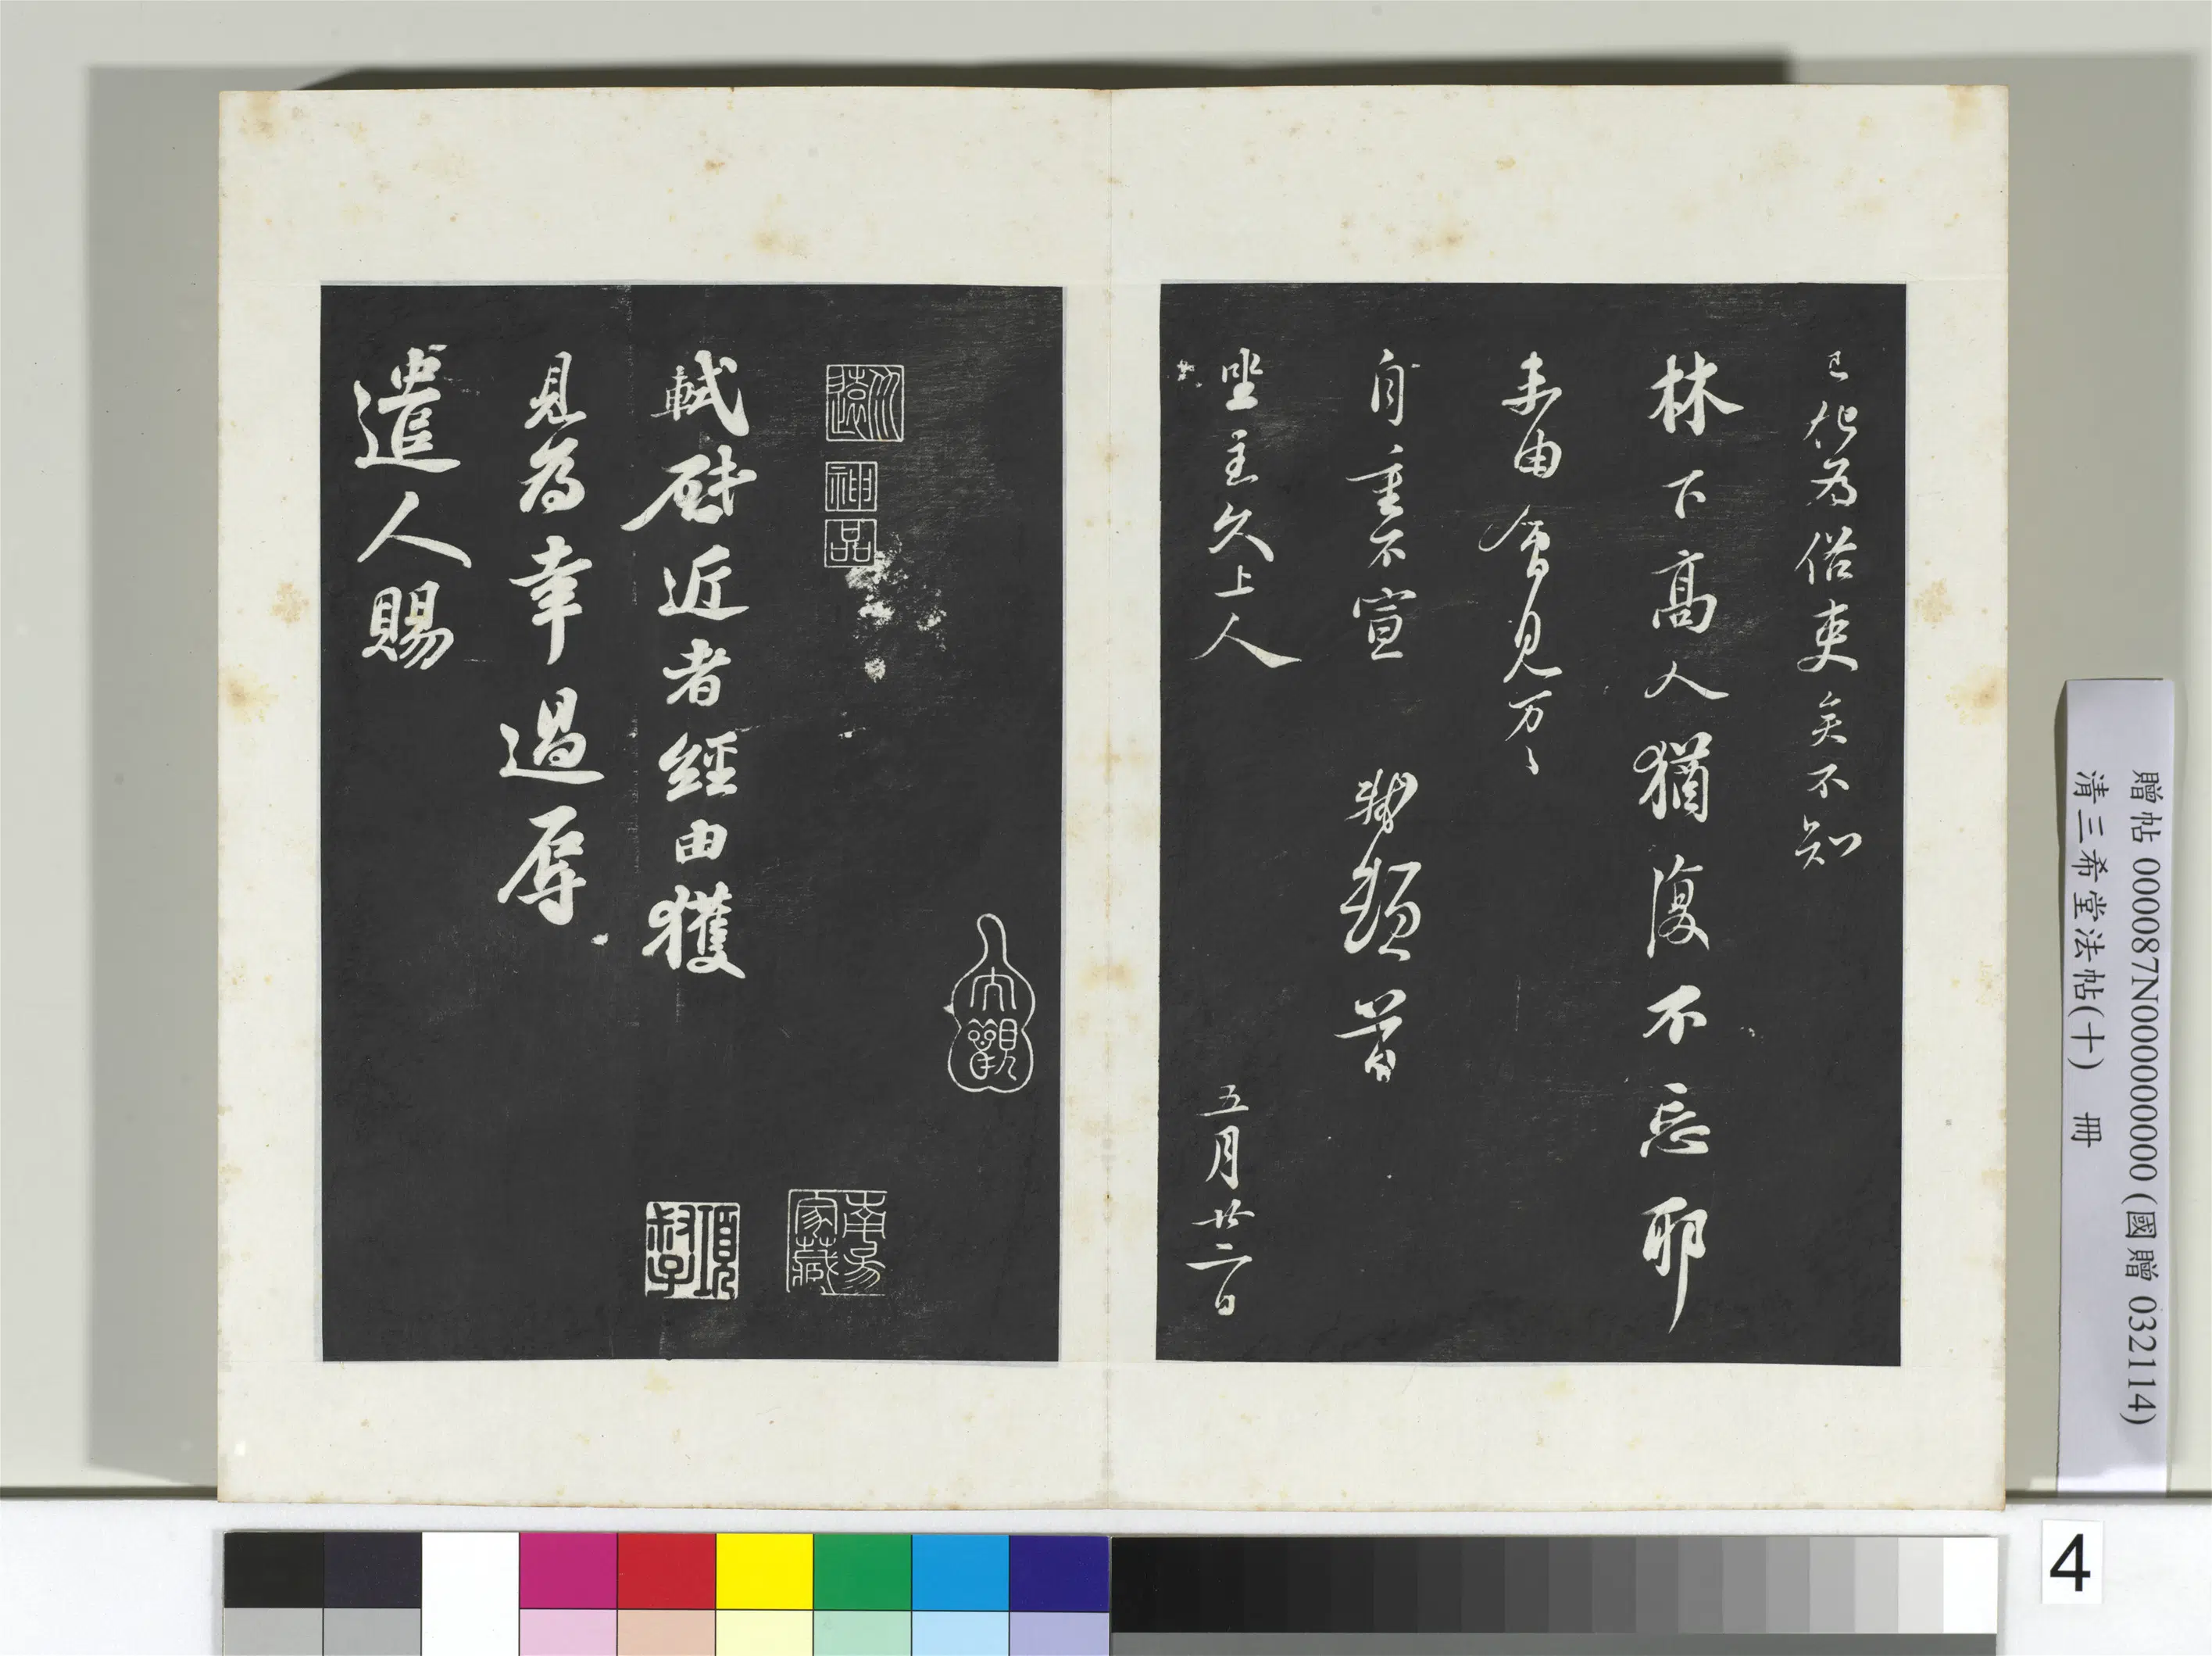 已化為俗吏矣不知
林下高人猶復不忘耶
未由會見万〻
自重不宣 軾頓首
坐主久上人 五月廿二日
大觀
神品
南昜家藏
項叔子
軾啟近者經由獲
見為幸過辱
遣人賜
贈帖 000087N000000000 (國贈 032114)
清三希堂法帖(十) 冊
4